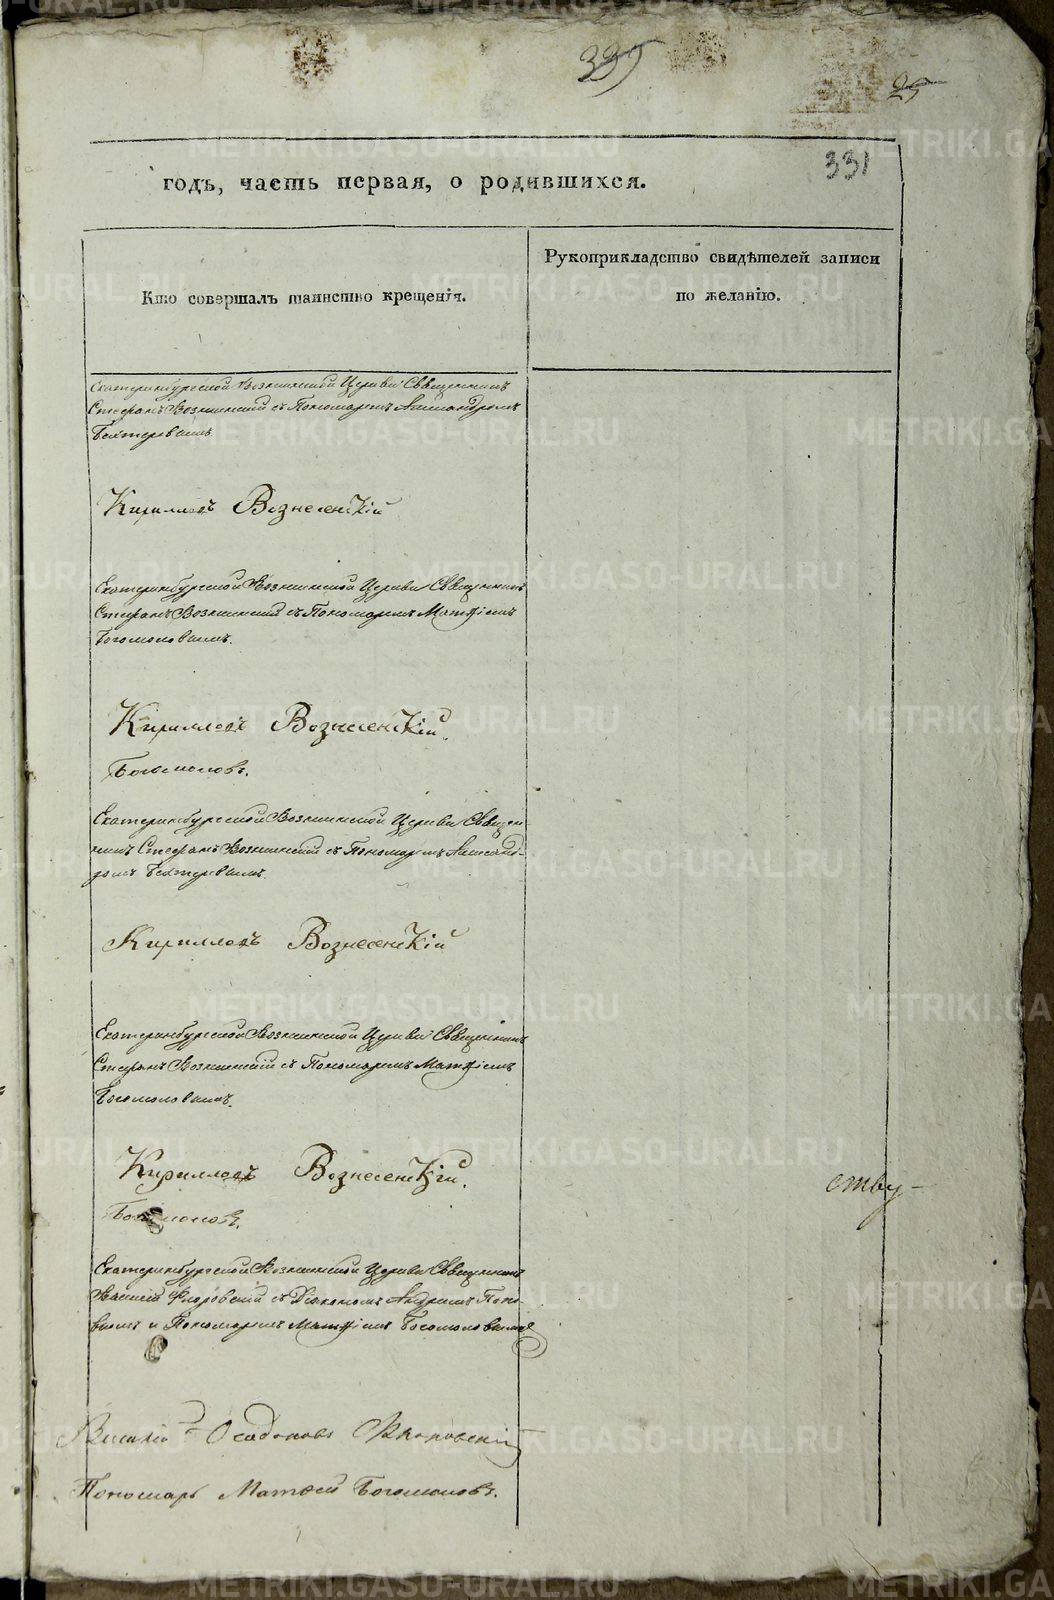 335
25
331
годъ, часть первая, о родившихся.
Кто совершалъ таинство крещенія.
Рукоприкладство свидѣтелей записи
по желанію.
Екатеринбургской Вознесенской Церкви Священникъ
Стефанъ Вознесенский съ Пономаремъ Александромъ
Бехтеревымъ
Кирилловъ Вознесенскій
Екатеринбургской Вознесенской Церкви Священникъ
Стефанъ Вознесенский съ Пономаремъ Матѳіемъ
Богомоловымъ.
Кирилловъ Вознесенскій.
Богомоловъ.
Екатеринбургской Вознесенской Церкви Священ-
никъ Стефанъ Вознесенский съ Пономаремъ Александ-
ромъ Бехтеревымъ.
Кирилловъ Вознесенскій
Екатеринбургской Вознесенской Церкви Священникъ
Стефанъ Вознесенскій съ Пономаремъ Матѳіемъ
Богомоловымъ.
Кирилловъ Вознесенскій.
ству-
Богомоловъ.
Екатеринбургской Вознесенской Церкви Священникъ
Василій Флоровский съ Діакономъ Андреемъ Попо-
вымъ и Пономаремъ Матѳіемъ Богомоловымъ
Василій Флоровскій
Пономарь Матѳей Богомоловъ.
METRIKI.GASO-URAL.RU